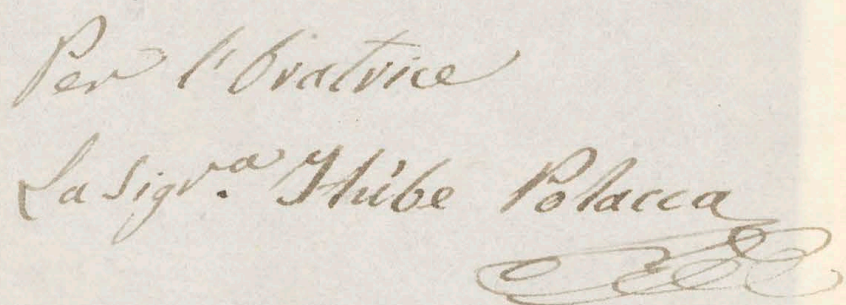 Per l'Oratrice
La Sigr.a Thibe Polacca